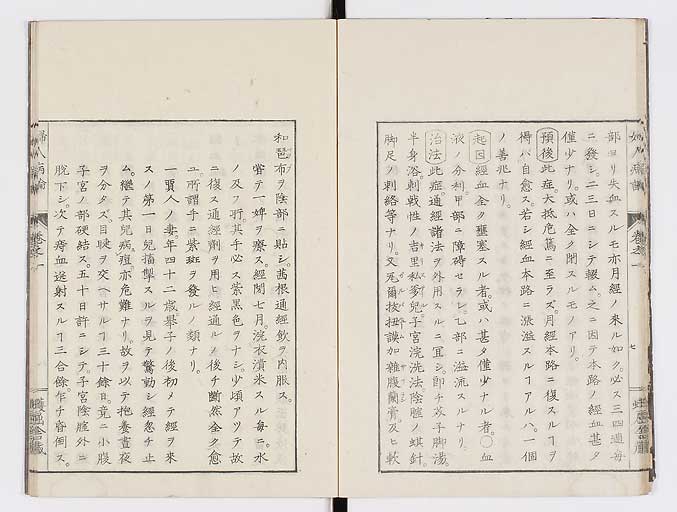 部ヨリ失血スルモ亦月經ノ來ル如ク。必ス三四週毎
ニ發シ。二三日ニシテ輟ム。之ニ因テ本路ノ經血甚タ
僅少ナリ。或ハ全ク閉スルモノアリ。
預後此症大抵危篤ニ至ラズ。月經本路ニ復スルヿヲ
得バ自愈ス。若シ經血本路ニ漲溢スルヿアルハ。一個
ノ善兆ナリ。
起因經血全ク壅塞スル者。或ハ甚タ僅少ナル者。〇血
液ノ分利。甲部ニ障碍セラレ。乙部ニ溢流スルナリ。
治法此症。通經諸法ヲ外用スルニ宜シ。即チ芥子脚湯。
半身浴。刺戟性ノ吉里私爹兒。子宮浣洗法。陰腟ノ蜞針。
脚足ノ刺絡等ナリ。又
及ヒ軟
和琶布ヲ陰部ニ貼シ。茜根通經飲ヲ内服ス。
嘗テ一婢ヲ療ス。經閉七月。浣衣漬米スル毎ニ。水
ノ及フ所。其手必ス紫黒色ヲナシ。少頃アツテ故
ニ復ス。通經劑ヲ用ヒ經通ルノ後チ。斷然全ク愈
ユ。所謂手ニ紫斑ヲ發ルノ類ナリ。
一賈人ノ妻。年四十二歳。擧子ノ後初メテ經ヲ來
スノ第一日。兒搐搦スルヲ見テ驚動シ。經忽チ止
ム。繼テ其兒病痘。亦危難ナリ。故ヲ以テ抱養晝夜
ヲ分タズ。目睫ヲ交ヘサルヿ三十餘日。竟ニ小腹
子宮ノ部硬結ス。五十日許ニシテ。子宮陰腟外ニ
脱下シ。次テ瘀血迸射スルヿ三合餘。乍チ昏倒ス。